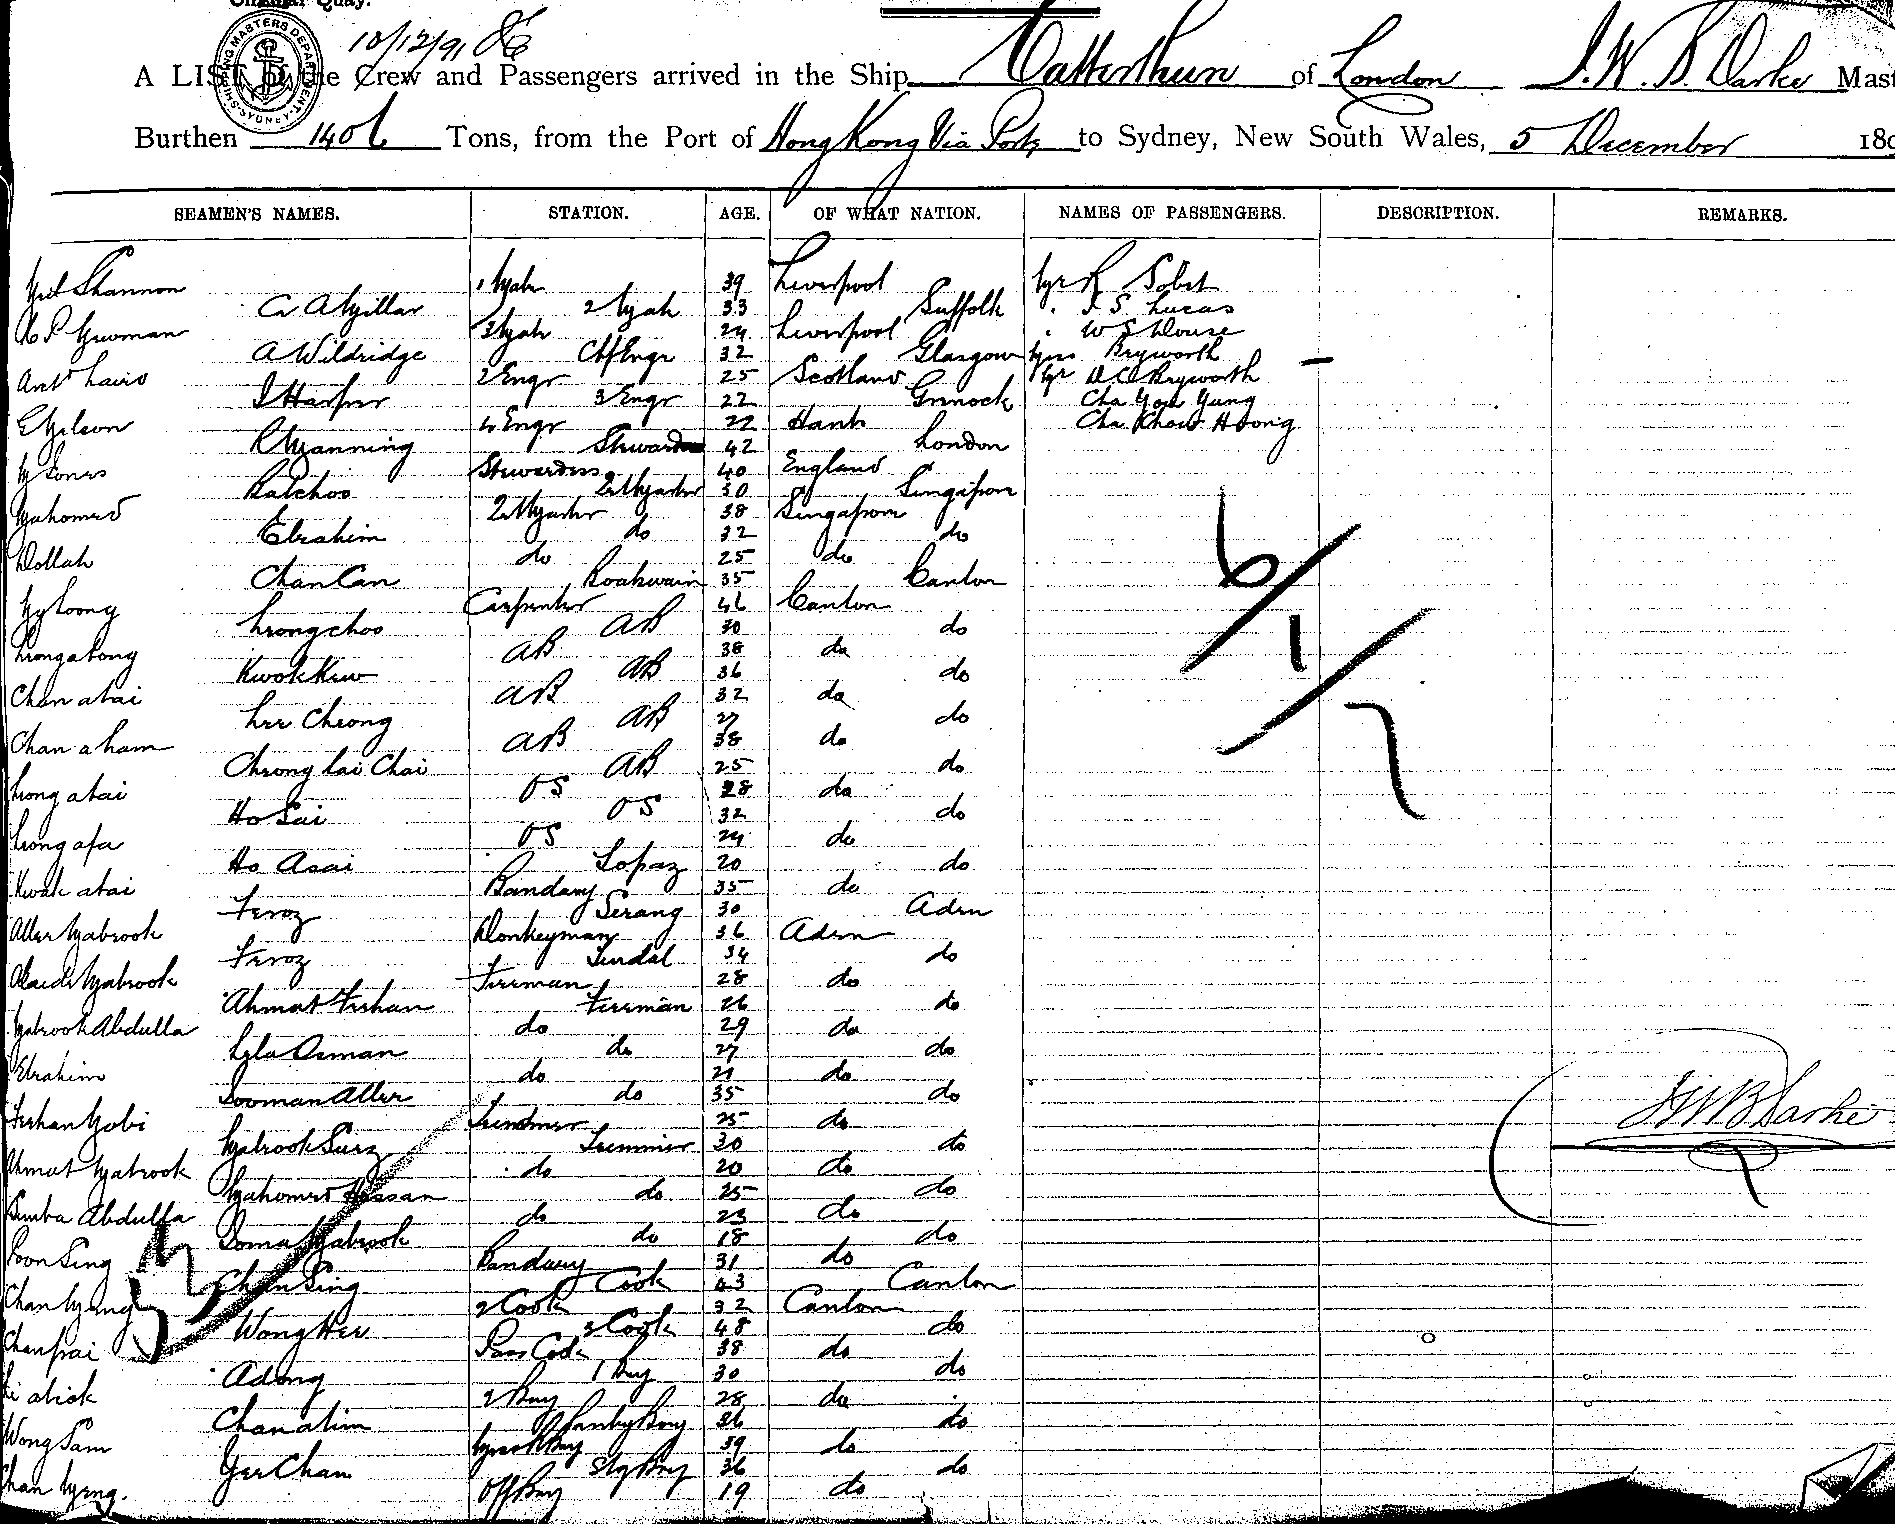 Circular Quay.
10/12/91
SHIPPING MASTERS DEPARTMENT SYDNEY
A LIST of the Crew and Passengers arrived in the Ship Catterthun of London J. W. B. Darke Mast
Burthen 1406 Tons, from the Port of Hong Kong Via Ports to Sydney, New South Wales, 5 December 189
SEAMEN'S NAMES. STATION. AGE. OF WHAT NATION. NAMES OF PASSENGERS. DESCRIPTION. REMARKS.
Shannon 1 Mate 39 Liverpool Mr R Sobst
C A Millar 2 Mate 33 Suffolk " J S Lucas
3 Mate 24 Liverpool " W S Douse
A Wildridge Chf Engr 32 Glasgow Mrs Bryworth
2 Engr 25 Scotland Mr Bryworth
J Harper 3 Engr 22 Greenock Cha You Yung
E Gilson 4 Engr 22 Hants Cha Khow Hoong
R Manning Steward 42 London
M Jones Stewardess 40 England
Ratchoo 2r Master 30 Singapore
Mahomed 2r Master 38 Singapore
Ebrahim do 32 do
Dollah do 25 do
Chan Can Boatswain 35 Canton
Carpenter 46 Canton
Leongchoo AB 30 do
AB 38 do
Kwok Kew AB 36 do
Chan atai AB 32 do
Lee Cheong AB 27 do
Chan a ham AB 38 do
Cheong Lai Chai AB 25 do
Leong atai OS 28 do
Ho Sai OS 32 do
Leong afa OS 24 do
Ho Asai Lopaz 20 do
Kwok atai Bandary 35 do
Feroz Serang 30 Aden
Aller Mabrook Donkeyman 36 Aden
Feroz Tindal 34 do
Mabrook Fireman 28 do
Ahmat Ferhan Fireman 26 do
Mabrook Abdulla do 29 do
Lela Osman do 27 do
Ebrahim do 21 do
Sooman Aller do 35 do
Ferhan Mobi Trimmer 25 do
Mabrook Trimmer 30 do
Ahmat Mabrook do 20 do
Mahomed Hassan do 25 do
Simba Abdulla do 23 do
Mabrook do 18 do
Soon Sing Bandary 31 do
Chan Sing Cook 43 Canton
2 Cook 32 Canton
Wong Hee 3 Cook 48 do
Chan pai Pass Cook 38 do
Adong 1 Boy 30 do
2 Boy 28 do
Chan alim Pantry Boy 36 do
Wong Sam Mess Boy 39 do
Yee Chan Stg Boy 36 do
Off Boy 19 do
6/1/
J W B Darke